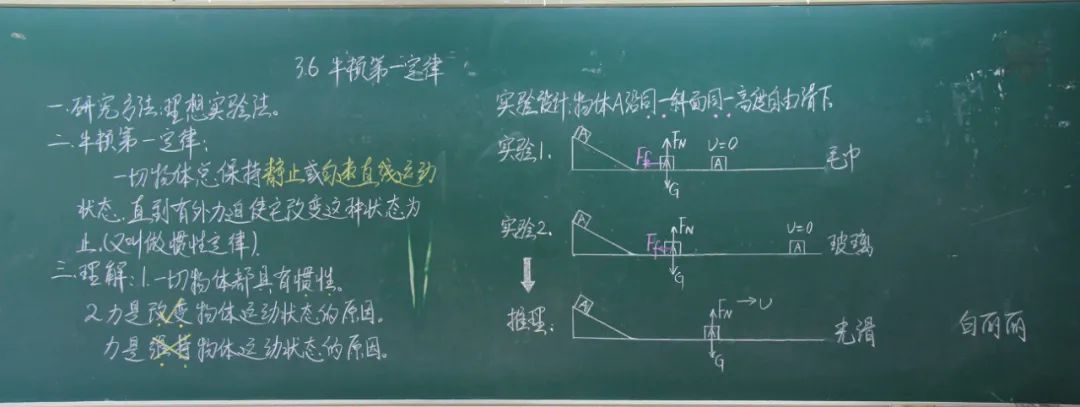 3.6 牛顿第一定律
一.研究方法:理想实验法。
二.牛顿第一定律:
一切物体总保持静止或匀速直线运动
状态,直到有外力迫使它改变这种状态为
止.(又叫做惯性定律).
三.理解:1.一切物体都具有惯性。
2.力是改变物体运动状态的原因。
力是维持物体运动状态的原因。
实验设计:物体A沿同一斜面同一高度自由滑下.
实验1.
A
Ff
FN
A
G
υ=0
A
毛巾
实验2.
A
Ff
FN
A
G
υ=0
A
玻璃
推理:
A
FN
→υ
A
G
光滑
白丽丽